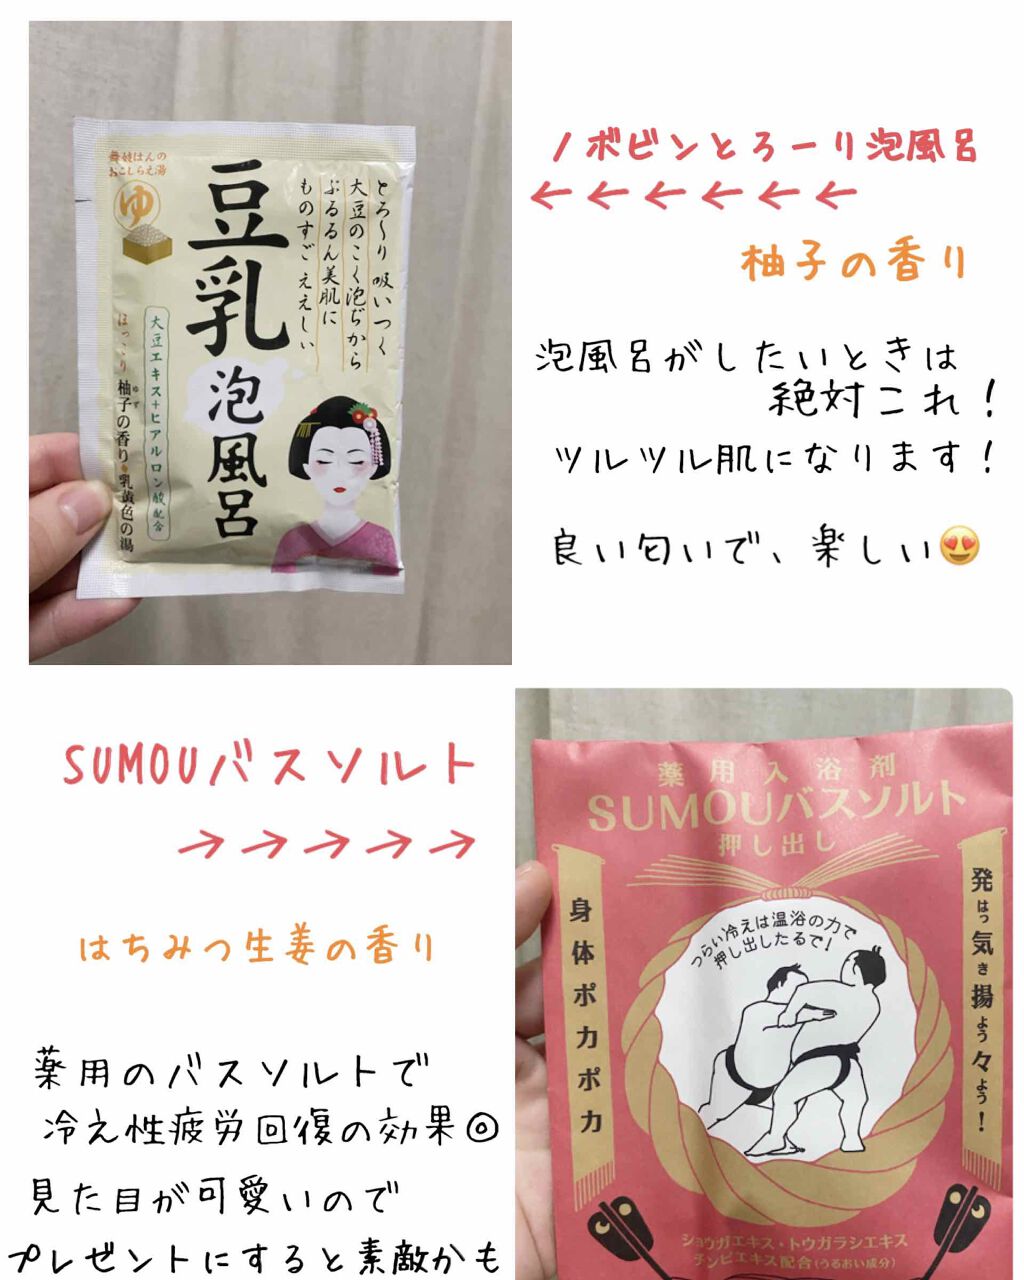 舞妓はんの
おこしらえ湯
ゆ
豆乳
泡風呂
とろ〜り 吸いつく
大豆のこく泡ぢから
ぷるるん美肌に
ものすご ええしい
大豆エキス+ヒアルロン酸配合
ほっこり 柚子の香り・乳黄色の湯
ゆず
ノボピンとろーり泡風呂
←←←←←←
柚子の香り
泡風呂がしたいときは
絶対これ！
ツルツル肌になります！
良い匂いで、楽しい😍
SUMOUバスソルト
→→→→→
はちみつ生姜の香り
薬用のバスソルトで
冷え性疲労回復の効果◎
見た目が可愛いので
プレゼントにすると素敵かも
薬用入浴剤
SUMOUバスソルト
押し出し
身体ポカポカ
つらい冷えは温浴の力で
押し出したるで！
発はっ気き揚よう々よう！
ショウガエキス・トウガラシエキス
チンピエキス配合(うるおい成分)